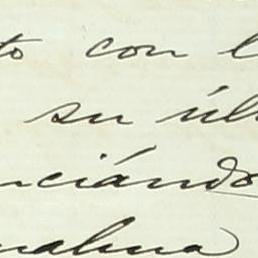 to con l
su úl
nciándo